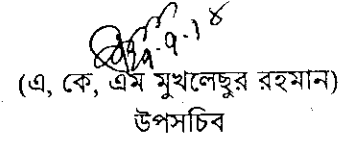 (এ, কে, এম মুখলেছুর রহমান)
উপসচিব